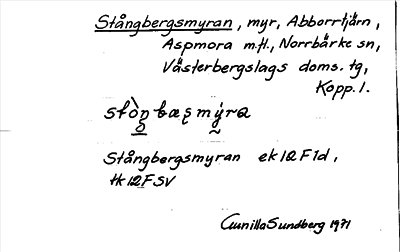 Stångbergsmyran, myr, Abborrtjärn,
Aspmora m.fl., Norrbärke sn,
Västerbergslags doms. tg,
Kopp. l.
Stångbergsmyran ek 12 F 1d,
tk 12 F SV
Gunilla Sundberg 1971